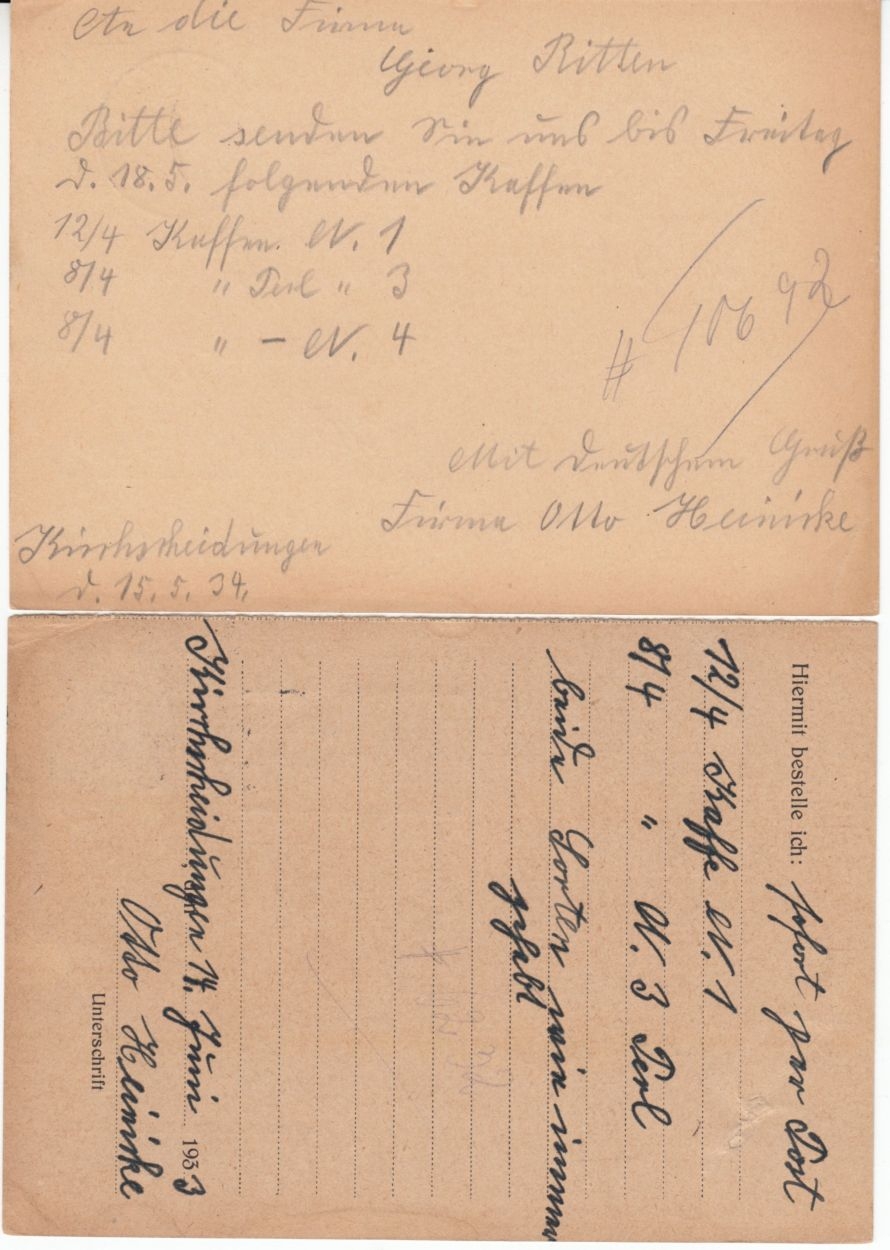 An die Firma
Georg Ritter
Bitte senden Sie uns bis Freitag
d. 18. 5. folgenden Kaffee
12/4 Kaffee. N. 1
8/4 " Perl " 3
8/4 " – N. 4
# 10692
Mit deutschem Gruß
Firma Otto Heinicke
Kirchscheidungen
d. 15. 5. 34.
Hiermit bestelle ich: sofort per Post
12/4 Kaffe N. 1
8/4 " N. 3 Perl
beide Sorten wie immer
gehabt
Kirchscheidungen 14. Juni 1933
Otto Heinicke
Unterschrift